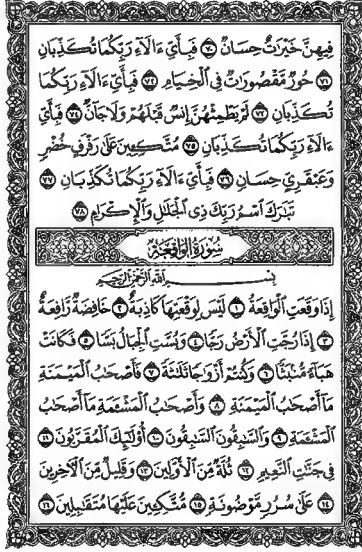 فِيهِنَّ خَيْرَٰتٌ حِسَانٌ ٧٠ فَبِأَىِّ ءَالَآءِ رَبِّكُمَا تُكَذِّبَانِ
٧١ حُورٌ مَّقْصُورَٰتٌ فِى ٱلْخِيَامِ ٧٢ فَبِأَىِّ ءَالَآءِ رَبِّكُمَا
تُكَذِّبَانِ ٧٣ لَمْ يَطْمِثْهُنَّ إِنسٌ قَبْلَهُمْ وَلَا جَآنٌّ ٧٤ فَبِأَىِّ
ءَالَآءِ رَبِّكُمَا تُكَذِّبَانِ ٧٥ مُتَّكِـِٔينَ عَلَىٰ رَفْرَفٍ خُضْرٍ
وَعَبْقَرِىٍّ حِسَانٍ ٧٦ فَبِأَىِّ ءَالَآءِ رَبِّكُمَا تُكَذِّبَانِ ٧٧
تَبَٰرَكَ ٱسْمُ رَبِّكَ ذِى ٱلْجَلَٰلِ وَٱلْإِكْرَامِ ٧٨
سُورَةُ الْوَاقِعَةِ
بِسْمِ ٱللَّهِ ٱلرَّحْمَٰنِ ٱلرَّحِيمِ
إِذَا وَقَعَتِ ٱلْوَاقِعَةُ ١ لَيْسَ لِوَقْعَتِهَا كَاذِبَةٌ ٢ خَافِضَةٌ رَّافِعَةٌ
٣ إِذَا رُجَّتِ ٱلْأَرْضُ رَجًّا ٤ وَبُسَّتِ ٱلْجِبَالُ بَسًّا ٥ فَكَانَتْ
هَبَآءً مُّنۢبَثًّا ٦ وَكُنتُمْ أَزْوَٰجًا ثَلَٰثَةً ٧ فَأَصْحَٰبُ ٱلْمَيْمَنَةِ
مَآ أَصْحَٰبُ ٱلْمَيْمَنَةِ ٨ وَأَصْحَٰبُ ٱلْمَشْـَٔمَةِ مَآ أَصْحَٰبُ
ٱلْمَشْـَٔمَةِ ٩ وَٱلسَّٰبِقُونَ ٱلسَّٰبِقُونَ ١٠ أُو۟لَٰٓئِكَ ٱلْمُقَرَّبُونَ ١١
فِى جَنَّٰتِ ٱلنَّعِيمِ ١٢ ثُلَّةٌ مِّنَ ٱلْأَوَّلِينَ ١٣ وَقَلِيلٌ مِّنَ ٱلْءَاخِرِينَ
١٤ عَلَىٰ سُرُرٍ مَّوْضُونَةٍ ١٥ مُّتَّكِـِٔينَ عَلَيْهَا مُتَقَٰبِلِينَ ١٦